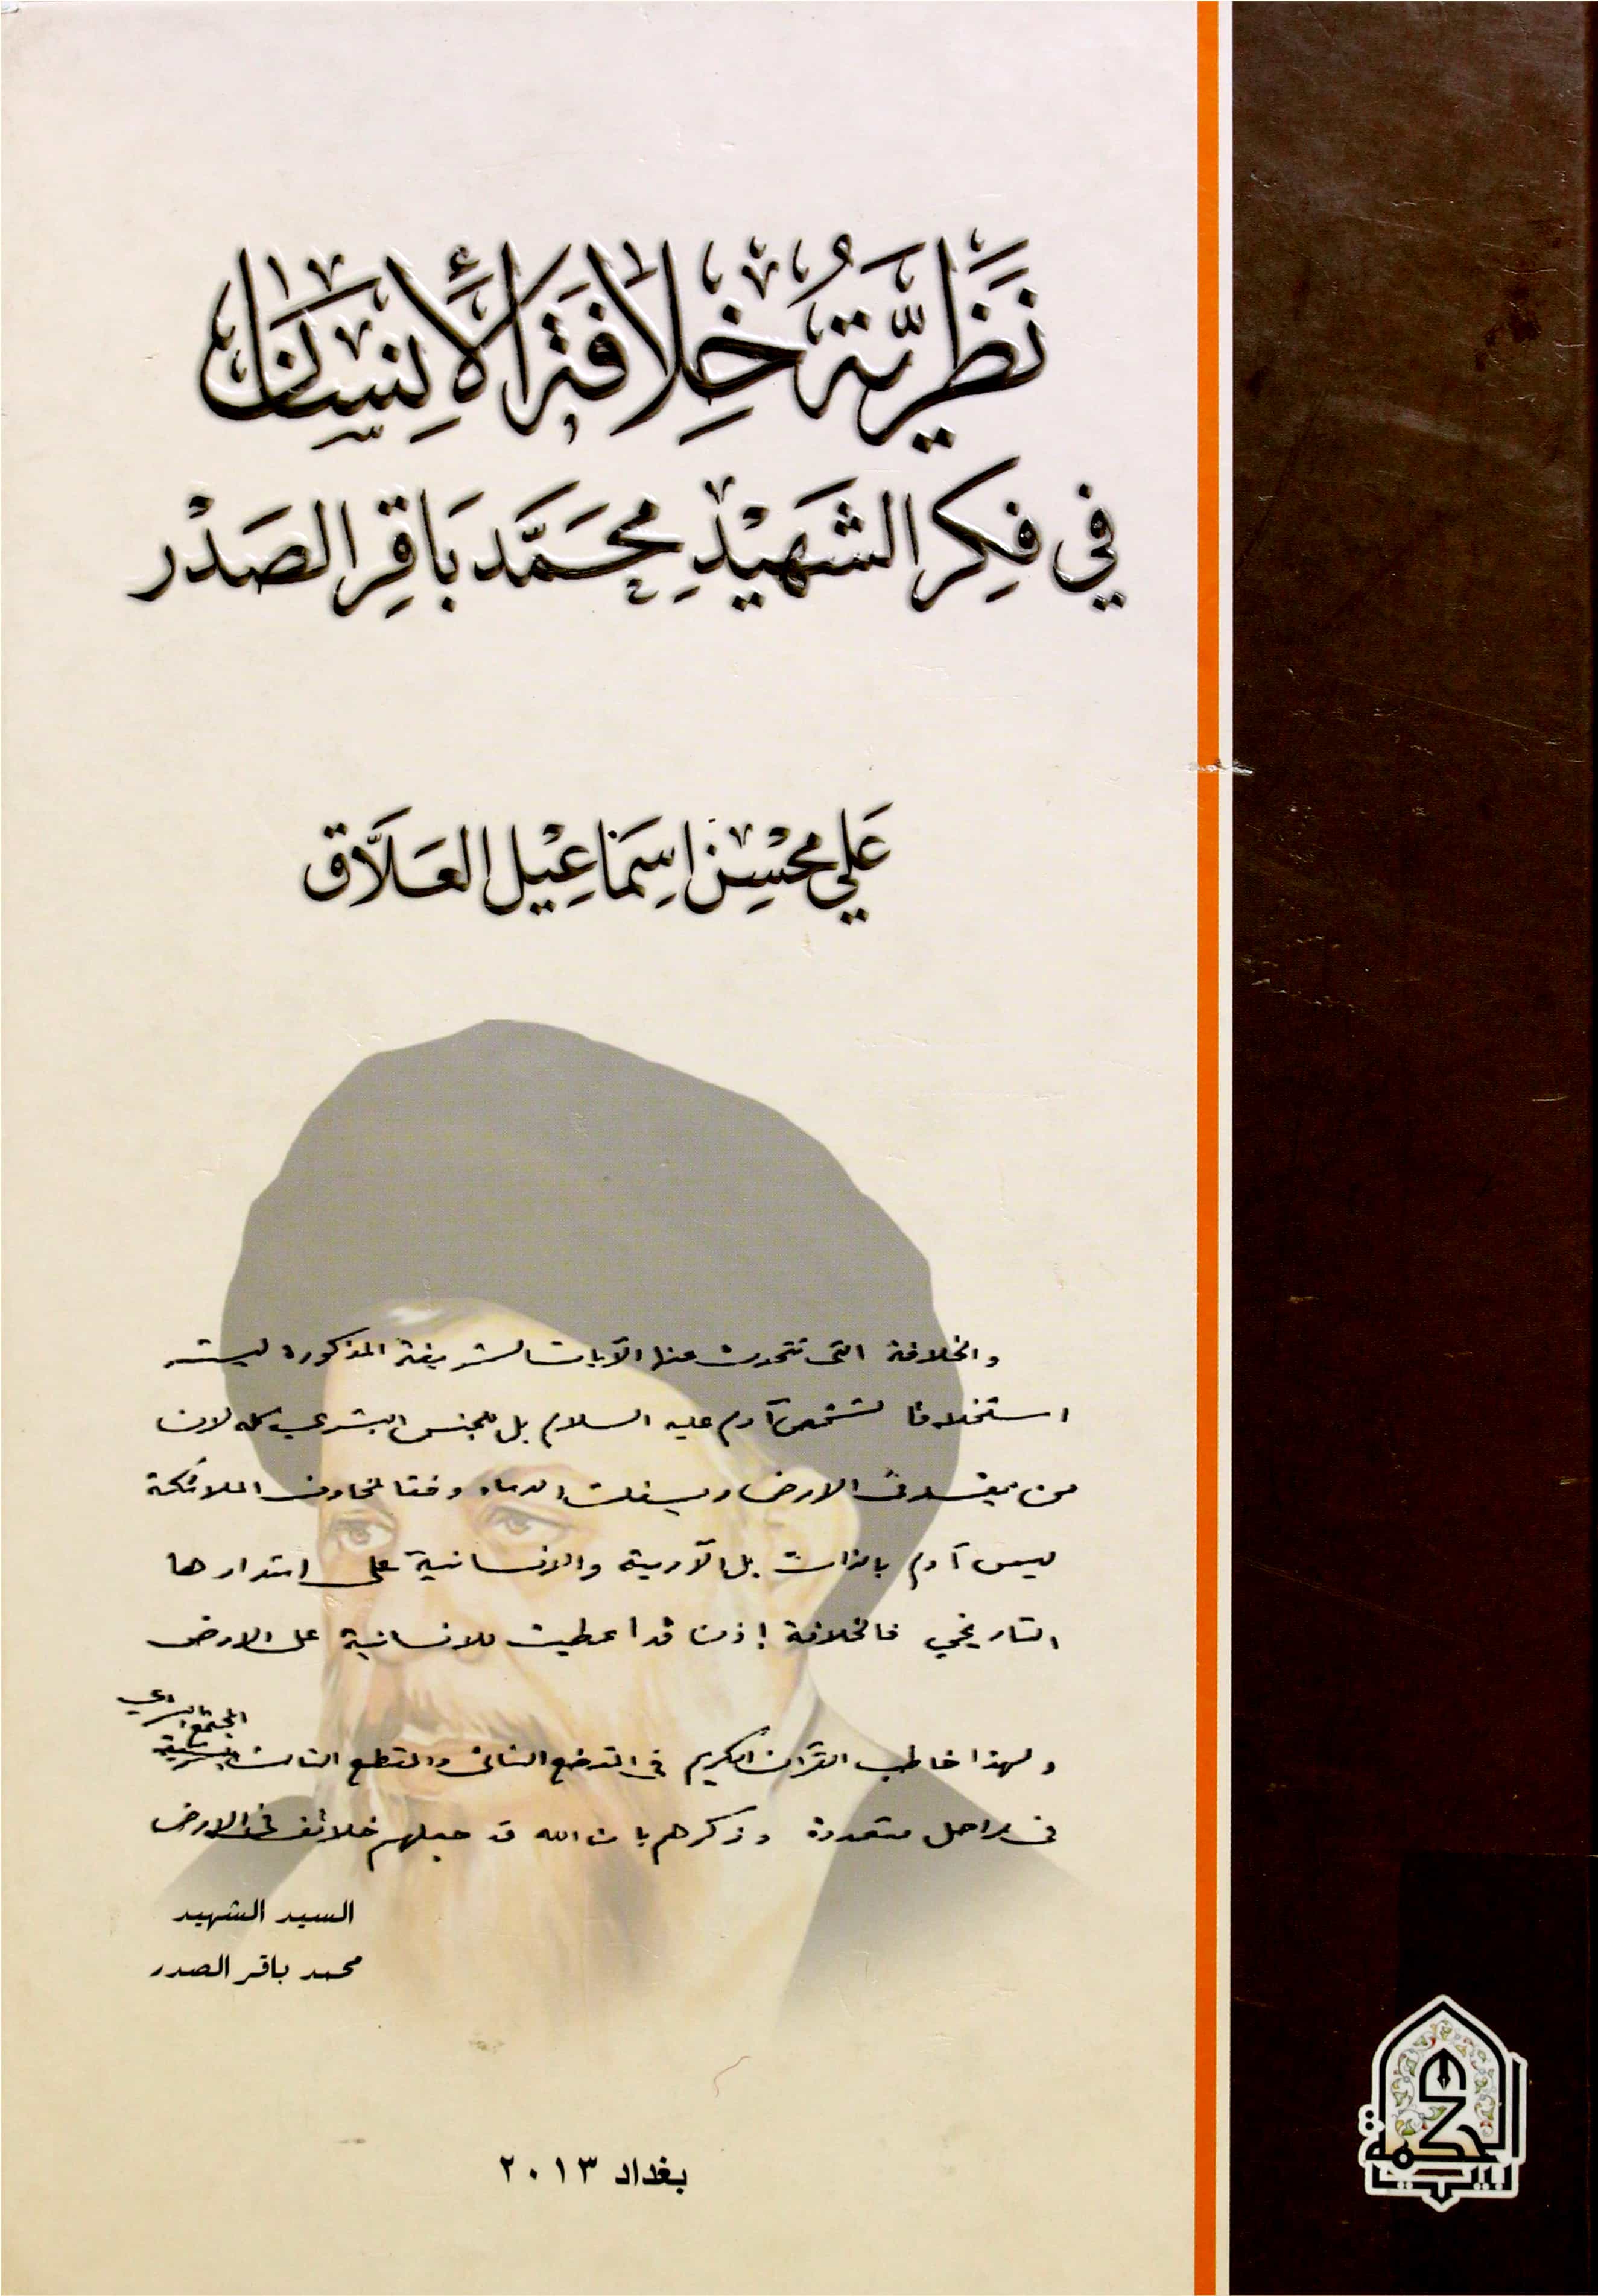 نَظَرِيَّةُ خِلَافَةِ الْأِنسَان
في فِكِر الشَهِيْدِ مُحَمَّد بَاقِر الصَدْر
عَلي مُحْسِن اسِمَاعِيْل العَلَّاق
والخلافة التى تتحدث عنها الآيات الشريفة المذكورة ليست
استخلافا لشخص آدم عليه السلام بل للجنس البشري كله لان
من يفسد فى الارض ويسفك الدماء وفقا لمخاوف الملائكة
ليس آدم بالذات بل الآدمية والانسانية على امتدادها
التاريخي فالخلافة إذن قد اعطيت للانسانية على الارض
المجتمع البشري
ولهذا خاطب القرآن الكريم فى المقطع الثانى والمقطع الثالث
فى مراحل متعددة وذكرهم بان الله قد جعلهم خلائف فى الارض
السيد الشهيد
محمد باقر الصدر
بغداد ٢٠١٣
بيت الحكمة